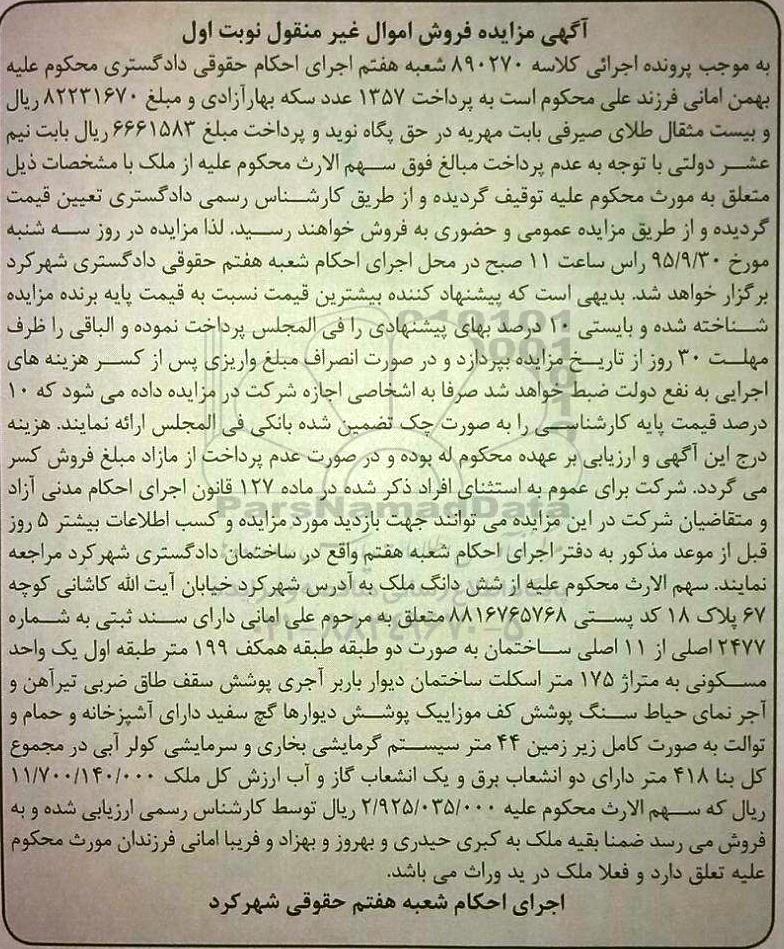 آگهی مزایده فروش اموال غیر منقول نوبت اول
به موجب پرونده اجرائی کلاسه ۸۹۰۲۷۰ شعبه هفتم اجرای احکام حقوقی دادگستری محکوم علیه
بهمن امانی فرزند علی محکوم است به پرداخت ۱۳۵۷ عدد سکه بهارآزادی و مبلغ ۸۲۲۳۱۶۷۰ ریال
و بیست مثقال طلای صیرفی بابت مهریه در حق پگاه نوید و پرداخت مبلغ ۶۶۶۱۵۸۳ ریال بابت نیم
عشر دولتی با توجه به عدم پرداخت مبالغ فوق سهم الارث محکوم علیه از ملک با مشخصات ذیل
متعلق به مورث محکوم علیه توقیف گردیده و از طریق کارشناس رسمی دادگستری تعیین قیمت
گردیده و از طریق مزایده عمومی و حضوری به فروش خواهند رسید. لذا مزایده در روز سه شنبه
مورخ ۹۵/۹/۳۰ راس ساعت ۱۱ صبح در محل اجرای احکام شعبه هفتم حقوقی دادگستری شهرکرد
برگزار خواهد شد. بدیهی است که پیشنهاد کننده بیشترین قیمت نسبت به قیمت پایه برنده مزایده
شناخته شده و بایستی ۱۰ درصد بهای پیشنهادی را فی المجلس پرداخت نموده و الباقی را ظرف
مهلت ۳۰ روز از تاریخ مزایده بپردازد و در صورت انصراف مبلغ واریزی پس از کسر هزینه های
اجرایی به نفع دولت ضبط خواهد شد صرفا به اشخاصی اجازه شرکت در مزایده داده می شود که ۱۰
درصد قیمت پایه کارشناسی را به صورت چک تضمین شده بانکی فی المجلس ارائه نمایند. هزینه
درج این آگهی و ارزیابی بر عهده محکوم له بوده و در صورت عدم پرداخت از مازاد مبلغ فروش کسر
می گردد. شرکت برای عموم به استثنای افراد ذکر شده در ماده ۱۲۷ قانون اجرای احکام مدنی آزاد
و متقاضیان شرکت در این مزایده می توانند جهت بازدید مورد مزایده و کسب اطلاعات بیشتر ۵ روز
قبل از موعد مذکور به دفتر اجرای احکام شعبه هفتم واقع در ساختمان دادگستری شهرکرد مراجعه
نمایند. سهم الارث محکوم علیه از شش دانگ ملک به آدرس شهرکرد خیابان آیت الله کاشانی کوچه
۶۷ پلاک ۱۸ کد پستی ۸۸۱۶۷۶۵۷۶۸ متعلق به مرحوم علی امانی دارای سند ثبتی به شماره
۲۴۷۷ اصلی از ۱۱ اصلی ساختمان به صورت دو طبقه طبقه همکف ۱۹۹ متر طبقه اول یک واحد
مسکونی به متراژ ۱۷۵ متر اسکلت ساختمان دیوار باربر آجری پوشش سقف طاق ضربی تیرآهن و
آجر نمای حیاط سنگ پوشش کف موزاییک پوشش دیوارها گچ سفید دارای آشپزخانه و حمام و
توالت به صورت کامل زیر زمین ۴۴ متر سیستم گرمایشی بخاری و سرمایشی کولر آبی در مجموع
کل بنا ۴۱۸ متر دارای دو انشعاب برق و یک انشعاب گاز و آب ارزش کل ملک ۱۱/۷۰۰/۱۴۰/۰۰۰
ریال که سهم الارث محکوم علیه ۲/۹۲۵/۰۳۵/۰۰۰ ریال توسط کارشناس رسمی ارزیابی شده و به
فروش می رسد ضمنا بقیه ملک به کبری حیدری و بهروز و بهزاد و فریبا امانی فرزندان مورث محکوم
علیه تعلق دارد و فعلا ملک در ید وراث می باشد.
اجرای احکام شعبه هفتم حقوقی شهرکرد
ParsNamadData